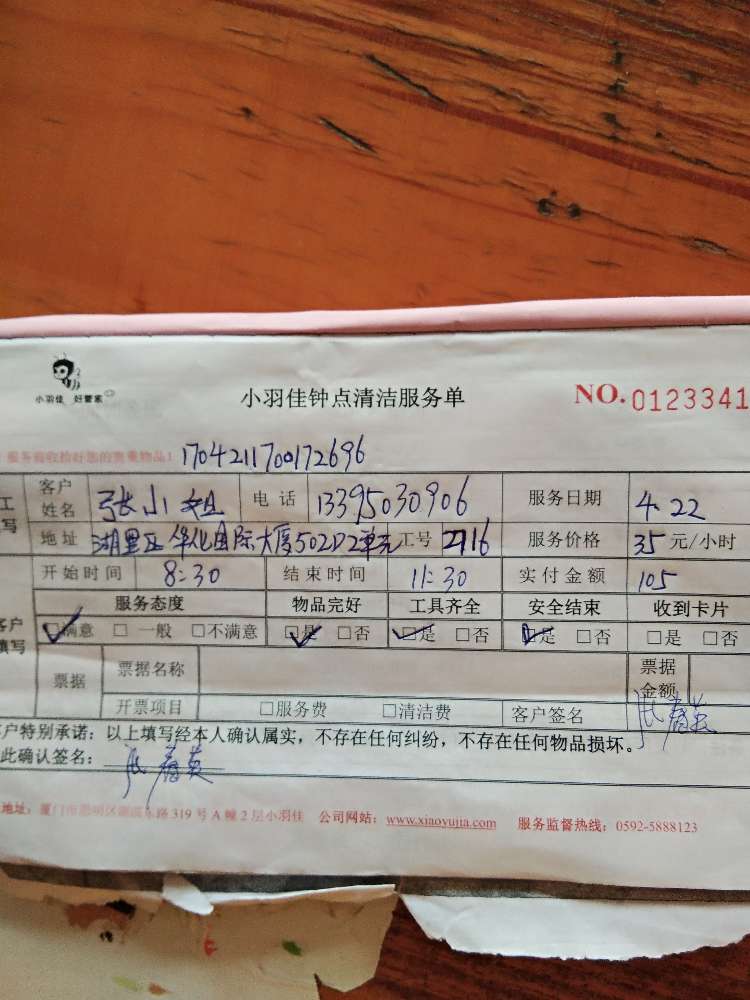 小羽佳 好管家
小羽佳钟点清洁服务单
NO.0123341
服务验收拾好您的贵重物品! 1704211700172696
工 客户姓名 张小姐 电话 13395030906 服务日期 4.22
写 地址 湖里区华化国际大厦502D2单元 工号 2716 服务价格 35元/小时
开始时间 8:30 结束时间 11:30 实付金额 105
服务态度 物品完好 工具齐全 安全结束 收到卡片
客户填写 ☑满意 □一般 □不满意 ☑是 □否 ☑是 □否 ☑是 □否 □是 □否
票据 票据名称 票据金额
开票项目 □服务费 □清洁费 客户签名
客户特别承诺：以上填写经本人确认属实，不存在任何纠纷，不存在任何物品损坏。
此确认签名：
地址：厦门市思明区湖滨东路319号A幢2层小羽佳 公司网站：www.xiaoyujia.com 服务监督热线：0592-5888123